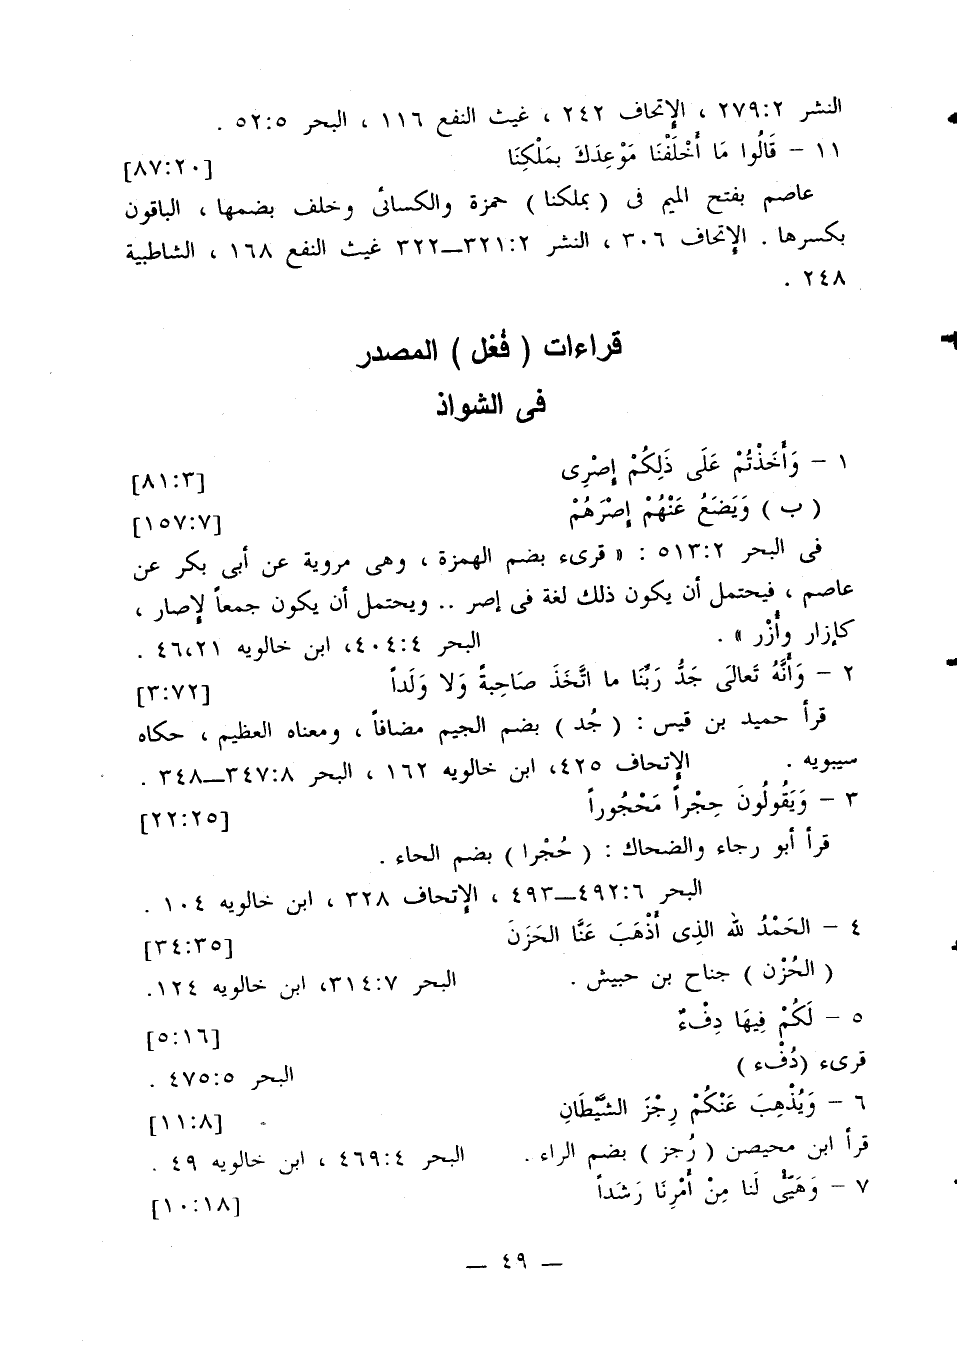 النشر ٢٧٩:٢ ، الإتحاف ٢٤٢ ، غيث النفع ١١٦ ، البحر ٥٢:٥ .
١١ – قَالُوا مَا أَخْلَفْنَا مَوْعِدَكَ بِمَلْكِنَا [٨٧:٢٠]
عاصم بفتح الميم فى ( بملكنا ) حمزة والكسائى وخلف بضمها ، الباقون
بكسرها . الإتحاف ٣٠٦ ، النشر ٣٢١:٢—٣٢٢ غيث النفع ١٦٨ ، الشاطبية
٢٤٨ .
قراءات ( فُعْل ) المصدر
فى الشواذ
١ – وَأَخَذْتُمْ عَلَى ذَلِكُمْ إِصْرِى [٨١:٣]
( ب ) وَيَضَعُ عَنْهُمْ إِصْرَهُمْ [١٥٧:٧]
فى البحر ٥١٣:٢ : « قرىء بضم الهمزة ، وهى مروية عن أبى بكر عن
عاصم ، فيحتمل أن يكون ذلك لغة فى إصر .. ويحتمل أن يكون جمعاً لإصار ،
كإزار وأُزْر » . البحر ٤٠٤:٤، ابن خالويه ٤٦،٢١ .
٢ – وَأَنَّهُ تَعالَى جَدُّ رَبِّنَا ما اتَّخَذَ صَاحِبةً وَلا وَلَداً [٣:٧٢]
قرأ حميد بن قيس : ( جُد ) بضم الجيم مضافاً ، ومعناه العظيم ، حكاه
سيبويه . الإتحاف ٤٢٥، ابن خالويه ١٦٢ ، البحر ٣٤٧:٨—٣٤٨ .
٣ – وَيَقُولُونَ حِجْراً مَحْجُوراً [٢٢:٢٥]
قرأ أبو رجاء والضحاك : ( حُجْرا ) بضم الحاء .
البحر ٤٩٢:٦—٤٩٣ ، الإتحاف ٣٢٨ ، ابن خالويه ١٠٤ .
٤ – الحَمْدُ لله الذِى أَذْهَبَ عَنَّا الحَزَنَ [٣٤:٣٥]
( الحُزْن ) جناح بن حبيش . البحر ٣١٤:٧، ابن خالويه ١٢٤.
٥ – لَكُمْ فِيهَا دِفْءٌ [٥:١٦]
قرىء (دُفْء ) البحر ٤٧٥:٥ .
٦ – وَيُذْهِبَ عَنْكُمْ رِجْزَ الشَّيْطَانِ [١١:٨]
قرأ ابن محيصن ( رُجز ) بضم الراء . البحر ٤٦٩:٤ ، ابن خالويه ٤٩ .
٧ – وَهَيِّئْ لَنا مِنْ أَمْرِنَا رَشَداً [١٠:١٨]
— ٤٩ —